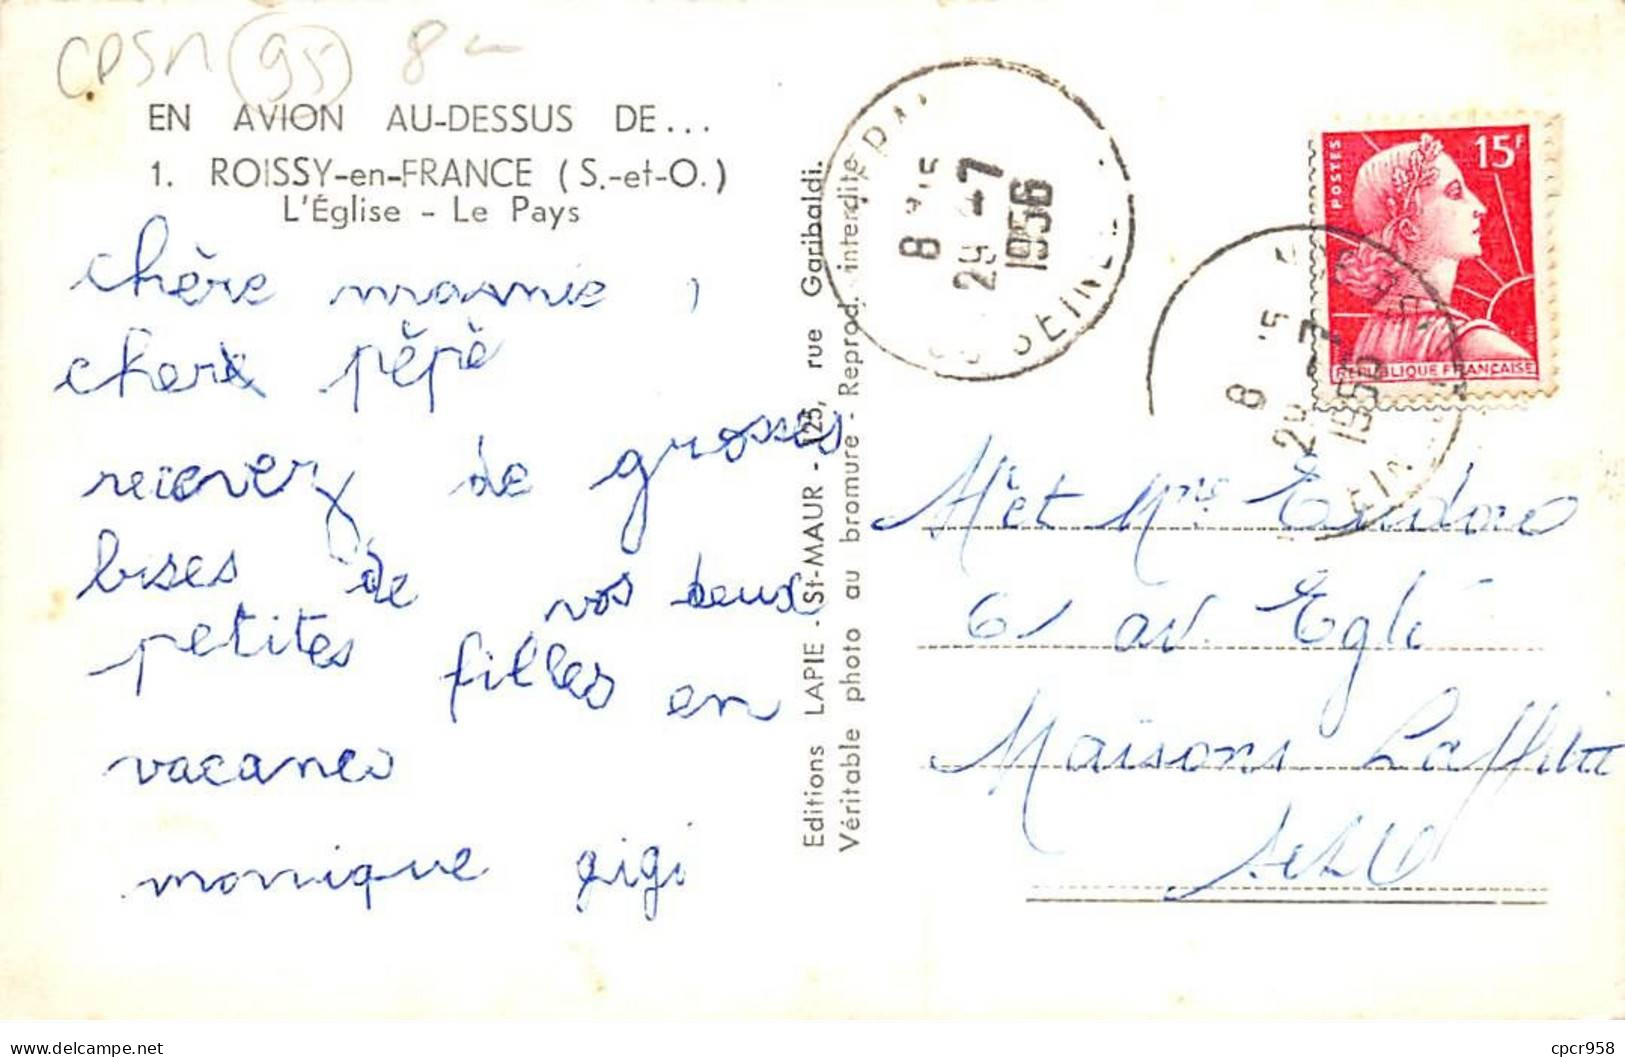 CPSM 95 8
EN AVION AU-DESSUS DE...
1. ROISSY-en-FRANCE (S.-et-O.)
L'Église - Le Pays
chère mamie,
cher pépé
recevez de grosses
bises de vos deux
petites filles en
vacances
monique gigi
Editions LAPIE - St-MAUR - 125, rue Garibaldi.
Véritable photo au bromure - Reprod. interdite
8 15
29 -7
1956
SEINE
8 15
29 -7
1956
POSTES
15F
REPUBLIQUE FRANÇAISE
Mr et Mme
61 av. Eglé
Maisons Laffitte
S et O
delcampe.net
cpcr958